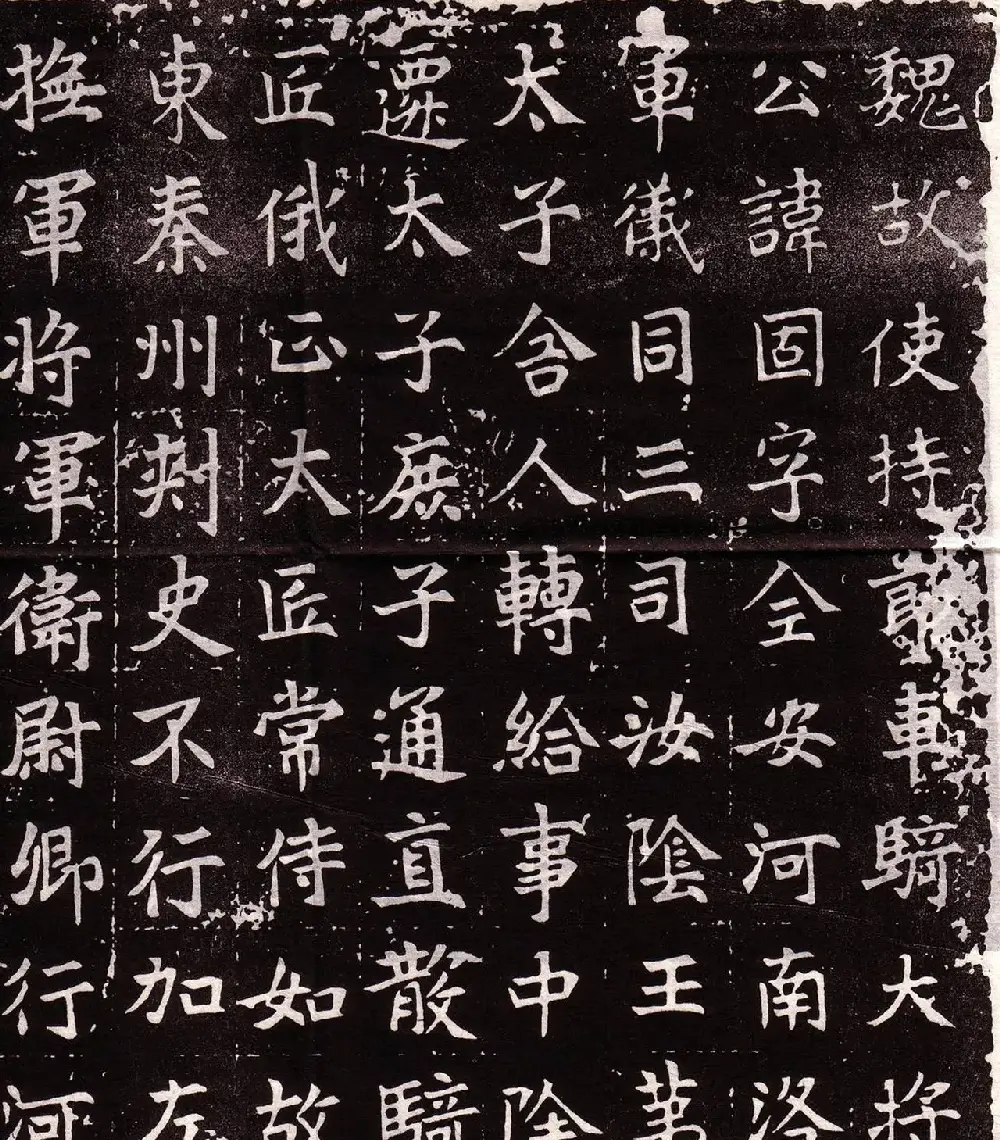 魏故使持節車騎大將
公諱固字全安河南洛
軍儀同三司汝陰王第
太子舍人轉給事中除
遷太子庶子通直散騎
匠俄正太匠常侍如故
東秦州刺史不行加左
撫軍將軍衛尉卿行河